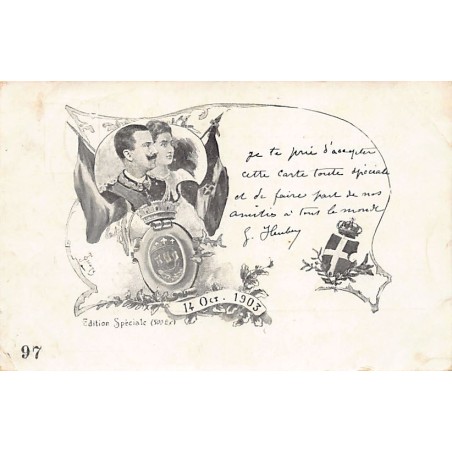 je te prie d'accepter
cette carte toute spéciale
et de faire part de nos
amitiés à tout le monde
G.
14 Oct. 1903
Edition Spéciale
97